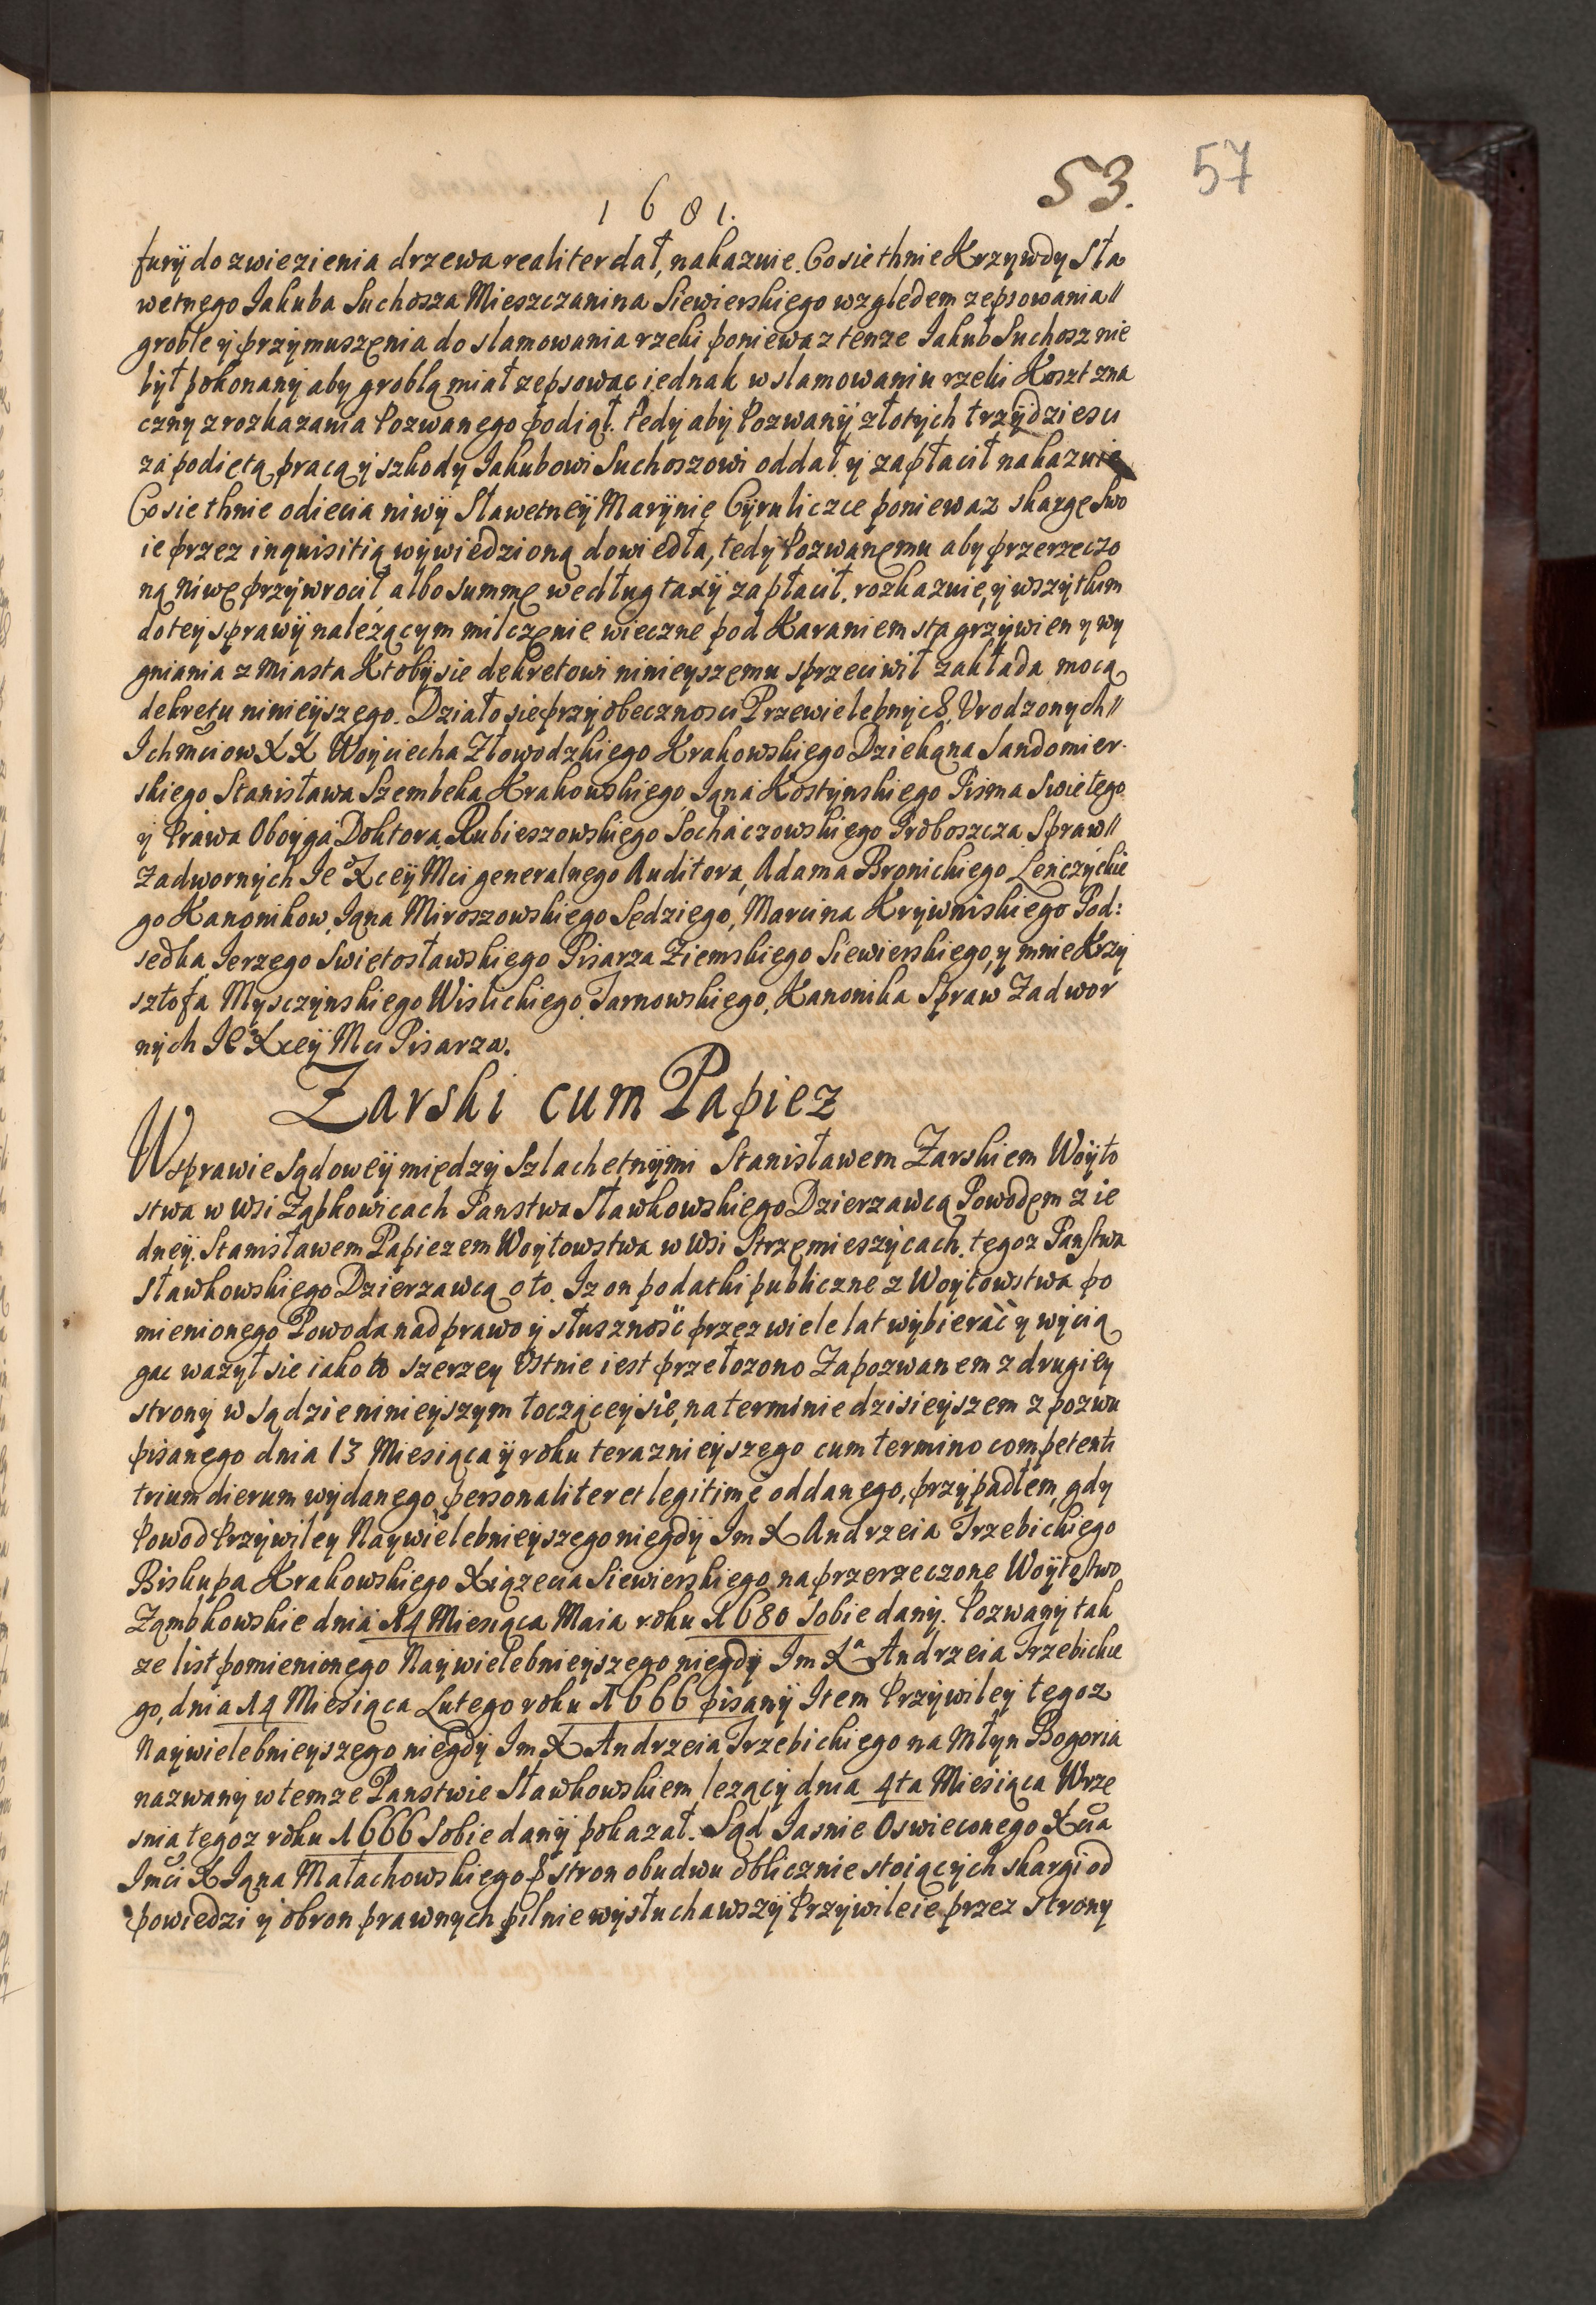 53. 57
1681.
fury do zwiezienia drzewa realiter dał, nakazuie. Co sie thnie Krzywdy Sła
wetnego Jakuba Suchosza Mieszczanina Siewierskiego względem zepsowania //
groble y przymuszenia do slamowania rzeki poniewaz tenze Jakub Suchosz nie
był pokonany aby groblą miał zepsowac iednak w slamowaniu rzeki Koszt zna
czny z rozkazania Pozwanego podiął. Tedy aby Pozwany złotych trzydziesci
za podietą pracą y szkody Jakubowi Suchoszowi oddał y zapłacił nakazuie
Co sie thnie odiecia niwy Sławetney Marynie Cyruliczce poniewaz skargę Swo
ie przez inquisitią wywiedzioną dowiedła, tedy Pozwanemu aby przerzeczo
ną Niwę przywrocił albo summę według taxy zapłacił. rozkazuie, y wszytkim
do tey sprawy należącym milczenie wieczne pod Karaniem sta grzywien y wy
gniania z Miasta Ktoby sie dekretowi ninieyszemu sprzeciwił zakłada mocą
dekretu ninieyszego. Działo sie przy obecznosci Przewielebnych, Urodzonych //
Ichmciow XX Woyciecha Złowodzkiego Krakowskiego Dziekana Sandomier-
skiego Stanisława Szembeka Krakowskiego, Jana Kostynskiego Pisma Swietego
y Prawa Oboyga Doktora, Rubieszowskiego Sochaczowskiego Proboszcza Spraw //
Zadwornych Jeº Xcey Mci generalnego Auditora, Adama Bronickiego Leńczyckie
go Kanonikow, Jana Miroszowskiego Sędziego, Marcina Krywniskiego Pod:
sedka Jerzego Swietosławskiego Pisarza Ziemskiego Siewierskiego, y mnie Krzy
sztofa Mysczynskiego Wislickiego, Tarnowskiego, Kanonika Spraw Zadwor
nych Jeº Xcey Mci Pisarza.
Zarski cum Papiez
W sprawie Sądowey między Szlachetnymi Stanisławem Zarskiem Woyto
stwa w Wsi Ząbkowicach Panstwa Sławkowskiego Dzierzawcą Powodem z ie
dney. Stanisławem Papiezem Woytowstwa w Wsi Strzemieszycach, tegoz Panstwa
Sławkowskiego Dzierzawcą o to. Iz on podatki publiczne z Woytowstwa po
mienionego Powoda nad prawo y słusznosć przez wiele lat wybierać y wycią
gac wazył sie iako to szerzey Ustnie iest przełozono Zapozwanem z drugiey
strony w Sądzie ninieyszym toczącey sie, na terminie dzisieyszem z pozwu
pisanego dnia 13 Miesiąca y roku teraznieyszego cum termino competenti
trium dierum wydanego, personaliter et legitimè oddanego, przypadłem, gdy
Powod Przywiley Naywielebnieyszego niegdy Jm X Andrzeia Trzebickiego
Biskupa Krakowskiego Xiązecia Siewierskiego na przerzeczone Woytostwo
Ząmbkowskie dnia 14 Miesiąca Maia roku 1680 Sobie dany. Pozwany tak
ze list pomienionego Naywielebnieyszego niegdy Jm Xª Andrzeia Trzebickie
go, dnia 14 Miesiąca Lutego roku 1666 pisany Item Przywiley tegoz
Naywielebnieyszego niegdy Jm X Andrzeia Trzebickiego na Młyn Bogoria
nazwany w temze Panstwie Sławkowskiem lezący dnia 4ta Miesiąca Wrze
snia tegoz roku 1666 Sobie dany pokazał. Sąd Jasnie Oswieconego Xcia
Jmci X Jana Małachowskiego & stron obudwu oblicznie stoiących skargi od
powiedzi y obron prawnych pilnie wysłuchawszy Przywileie przez strony